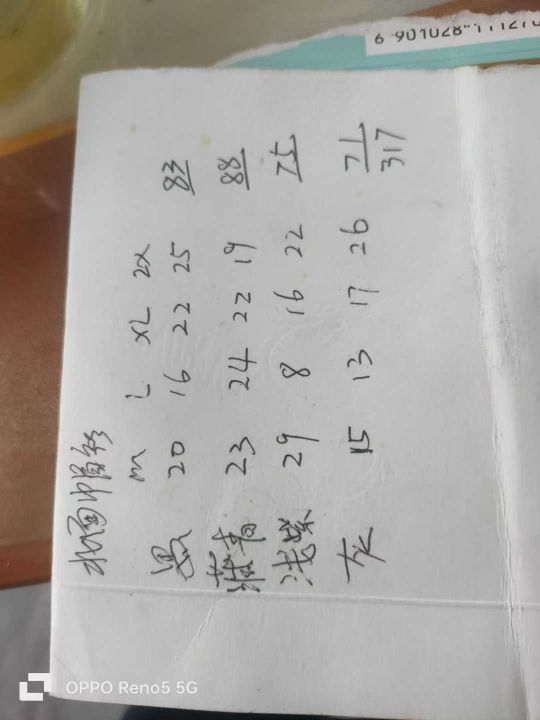 6 901028
北面
M L XL 2X
黑 20 16 22 25 83
藏青 23 24 22 19 88
浅紫 29 8 16 22 75
灰 15 13 17 26 71
317
OPPO Reno5 5G